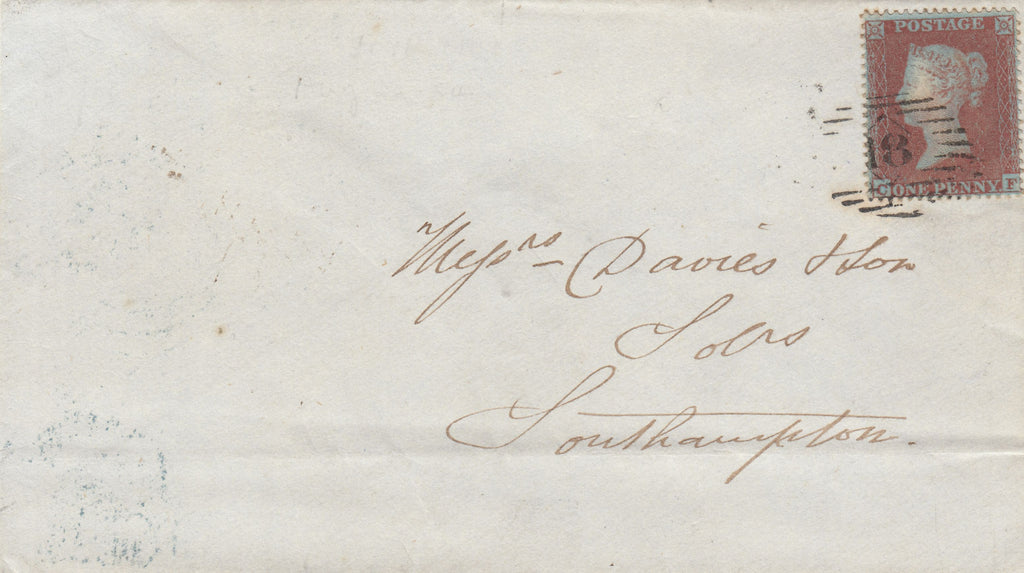 POSTAGE
18
C ONE PENNY F
Messrs Davies & Son
Solrs
Southampton.